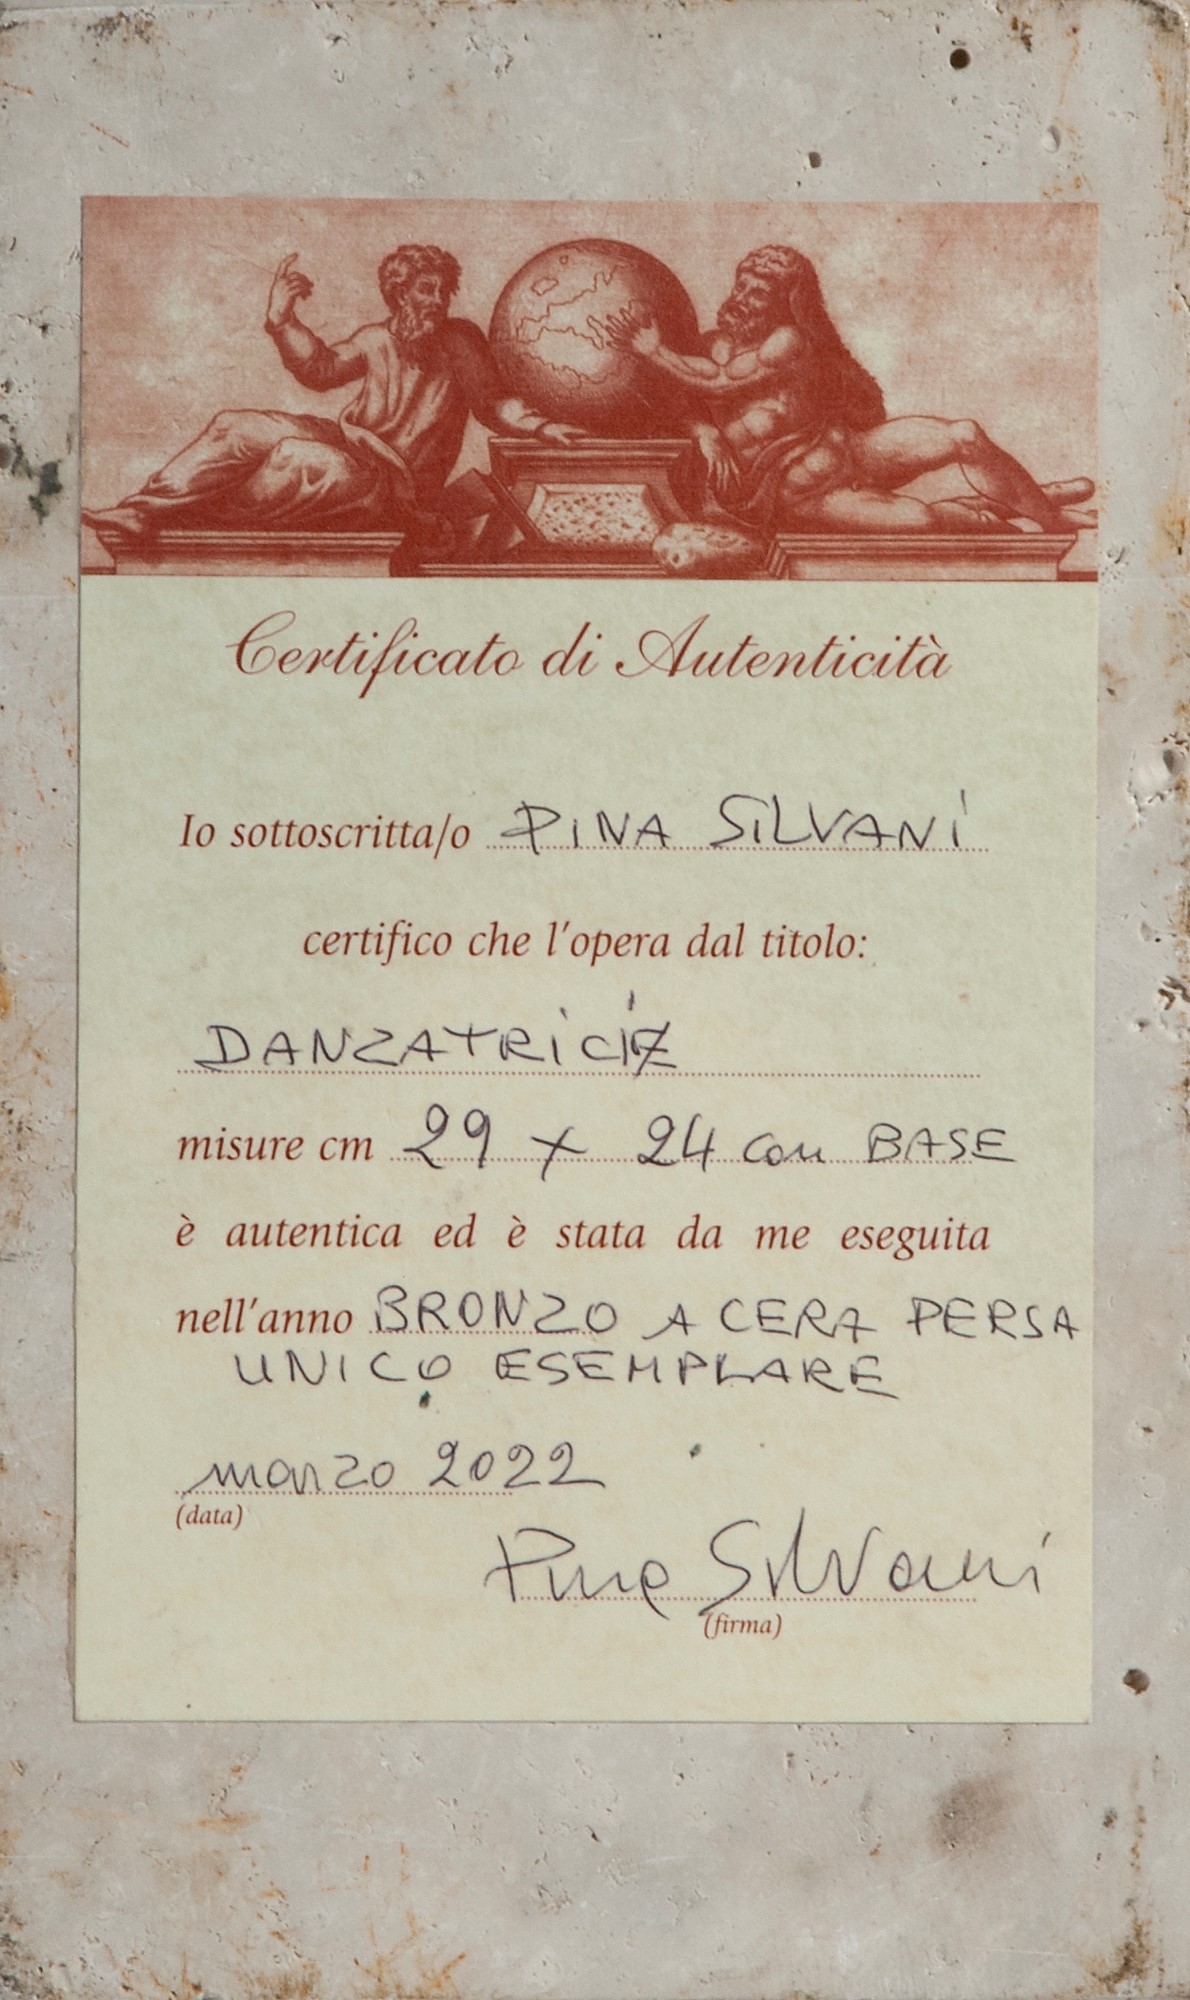 Certificato di Autenticità
Io sottoscritta/o PINA SILVANI
certifico che l'opera dal titolo:
DANZATRICE
misure cm 29 x 24 con BASE
è autentica ed è stata da me eseguita
nell'anno BRONZO A CERA PERSA
UNICO ESEMPLARE
marzo 2022
(data)
Pina Silvani
(firma)